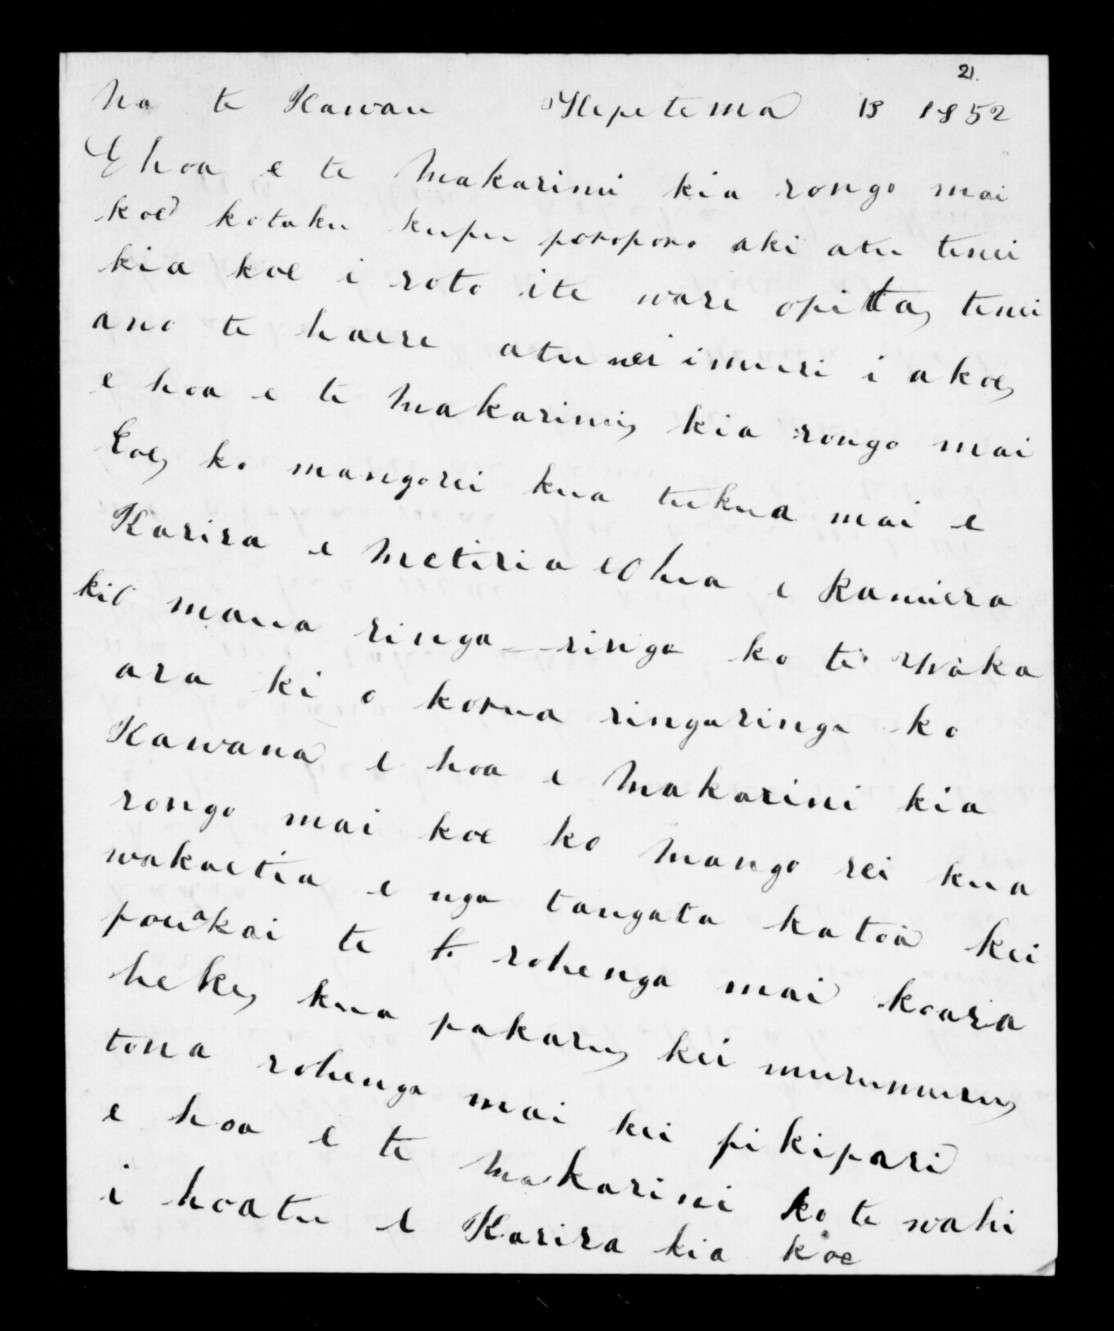 21.
Na te Kawau Hepetema 13 1852
E hoa e te Makarini kia rongo mai
koe kotaku kupu poroporo aki atu tenei
kia koe i roto ite ware opitta, tenei
ano te haere atu nei imuri i akoe,
e hoa e te Makarini, kia rongo mai
koe, ko mangorei kua tukua mai e
Karira e Metiria eOhua e Kamiera
kil maua ringa-ringa ko te waka
ara ki o korua ringaringa ko
Kawana e hoa e Makarini kia
rongo mai koe ko Mango rei kua
wakaetia e nga tangata katoa kei
pouakai te rohenga mai koara
heke, kua pakaru, kei murumuru,
tona rohenga mai kei pikipari
e hoa e te Makarini ko te wahi
i hoatu e Karira kia koe